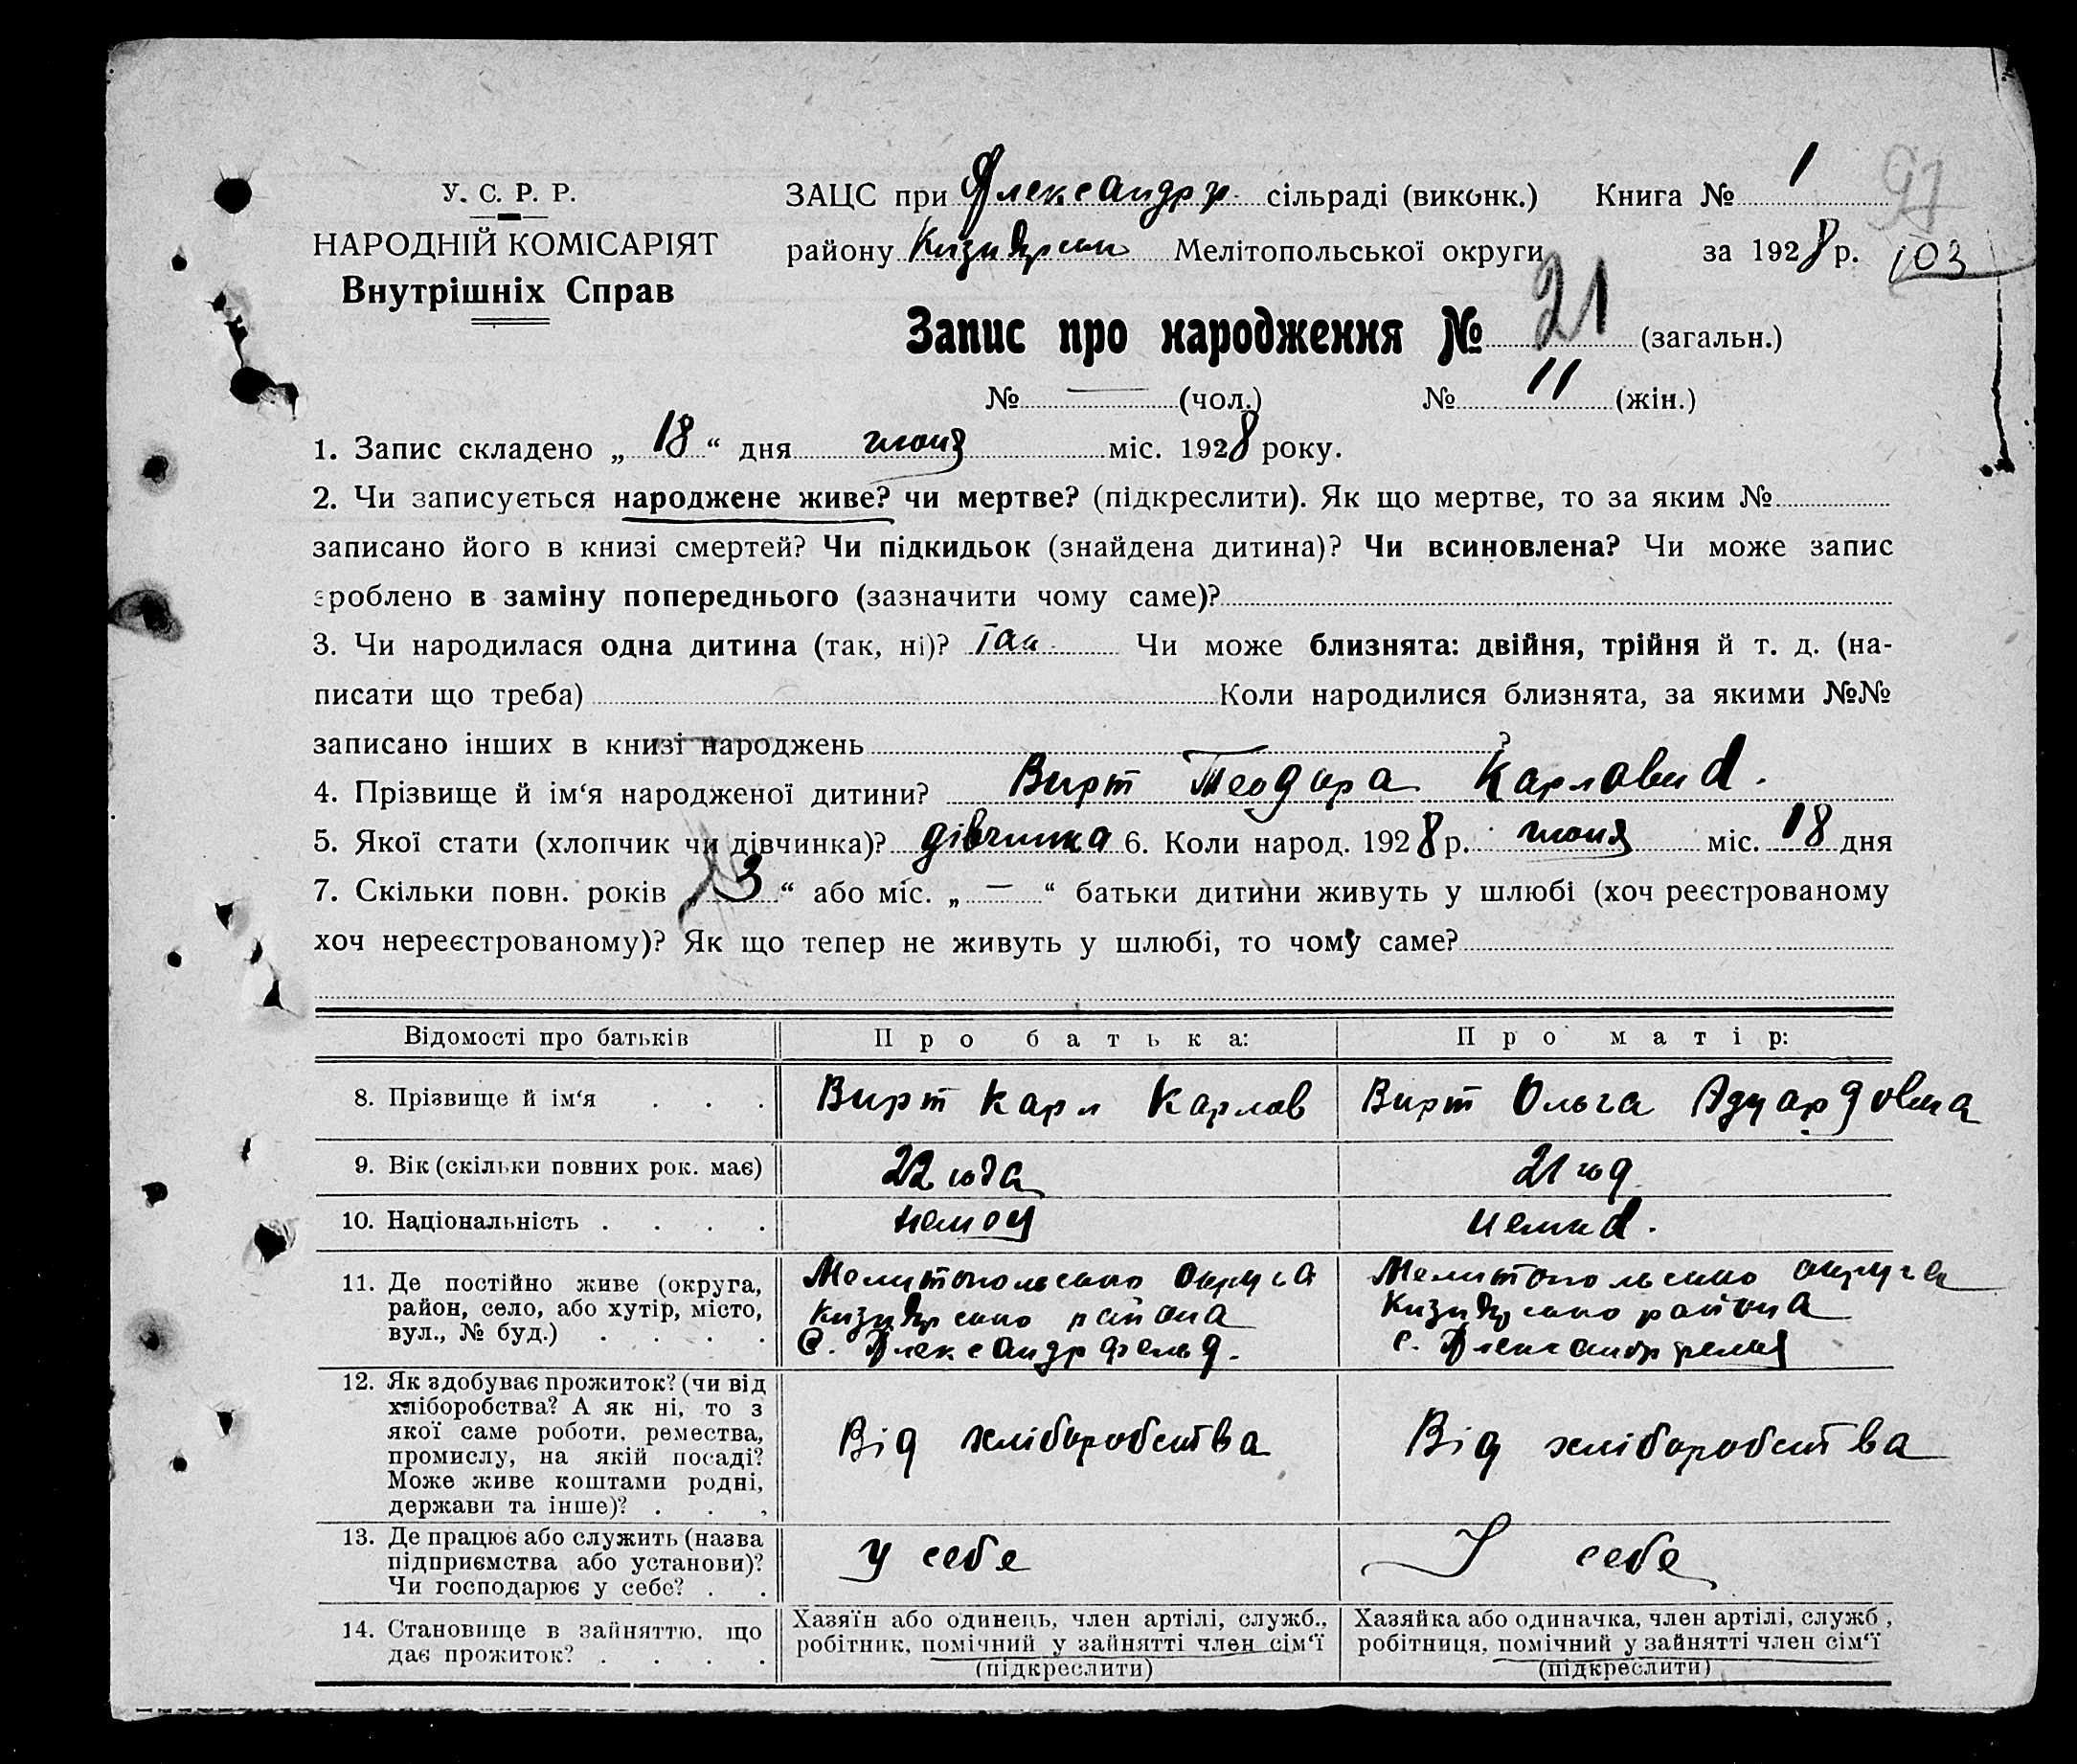 У. С. Р. Р.
НАРОДНІЙ КОМІСАРІЯТ
Внутрішніх Справ
ЗАЦС при Александрф. сільраді (виконк.) Книга № 1
97
району Мелітопольської округи за 1928 р. 103
Запис про народження № 21 (загальн.)
№ — (чол.) № 11 (жін.)
1. Запис складено „ 18 “ дня июня міс. 1928 року.
2. Чи записується народжене живе? чи мертве? (підкреслити). Як що мертве, то за яким №
записано його в книзі смертей? Чи підкидьок (знайдена дитина)? Чи всиновлена? Чи може запис
зроблено в заміну попереднього (зазначити чому саме)?
3. Чи народилася одна дитина (так, ні)? Так Чи може близнята: двійня, трійня й т. д. (на-
писати що треба) Коли народилися близнята, за якими №№
записано інших в книзі народжень ?
4. Прізвище й ім‘я народженої дитини? Вирт Теодора Карловна.
5. Якої стати (хлопчик чи дівчинка)? дівчинка 6. Коли народ. 1928 р. июня міс. 18 дня
7. Скільки повн. років „ 3 “ або міс. „ — “ батьки дитини живуть у шлюбі (хоч реєстрованому
хоч нереєстрованому)? Як що тепер не живуть у шлюбі, то чому саме?
Відомості про батьків Про батька: Про матір:
8. Прізвище й ім‘я . . . Вирт Карл Карлов Вирт Ольга Адуардовна
9. Вік (скільки повних рок. має) 22 года 21 год
10. Національність . . . . немец немка.
11. Де постійно живе (округа, район, село, або хутір, місто, вул., № буд.) . . . .
Мелитопольского округа
района
С. Александрфельд.
Мелитопольского округа
района
С. Александрфельд
12. Як здобуває прожиток? (чи від хліборобства? А як ні, то з якої саме роботи, ремества, промислу, на якій посаді? Може живе коштами родні, держави та інше)? . . .
Від хліборобства Від хліборобства
13. Де працює або служить (назва підприємства або установи)? Чи господарює у себе? . .
у себе У себе
14. Становище в зайняттю, що дає прожиток? . . . .
Хазяїн або одинець, член артілі, служб., робітник, помічний у зайнятті член сім‘ї (підкреслити)
Хазяйка або одиначка, член артілі, служб, робітниця, помічний у зайнятті член сім‘ї (підкреслити)